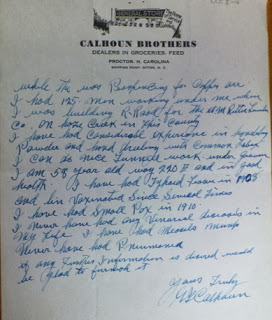 GENERAL STORE
CALHOUN BROTHERS
DEALERS IN GROCERIES. FEED
PROCTOR, N. CAROLINA
while the was Prospecting for Copper are
I had 125 Men working under me when
I was building R. Road for the W.M. Ritter Lumber
Co. On Hazel Creek in this County
I have had Considerable experience in handling
Powder and hand drilling with Common Labor
I can do Nice Tunnell work under ground
I am 58 year old way 220 # and in good
health. I have had Typhoid Fever in 1908
and bin Vaxinated Since Several Times
I have had Small Pox in 1910.
I never have had any Vinarial diseases in
my life I have had Measels Mumps
Never have had Pneumonia
if any further Information is desired would
be Glad to furnish it
Yours Truly
Calhoun